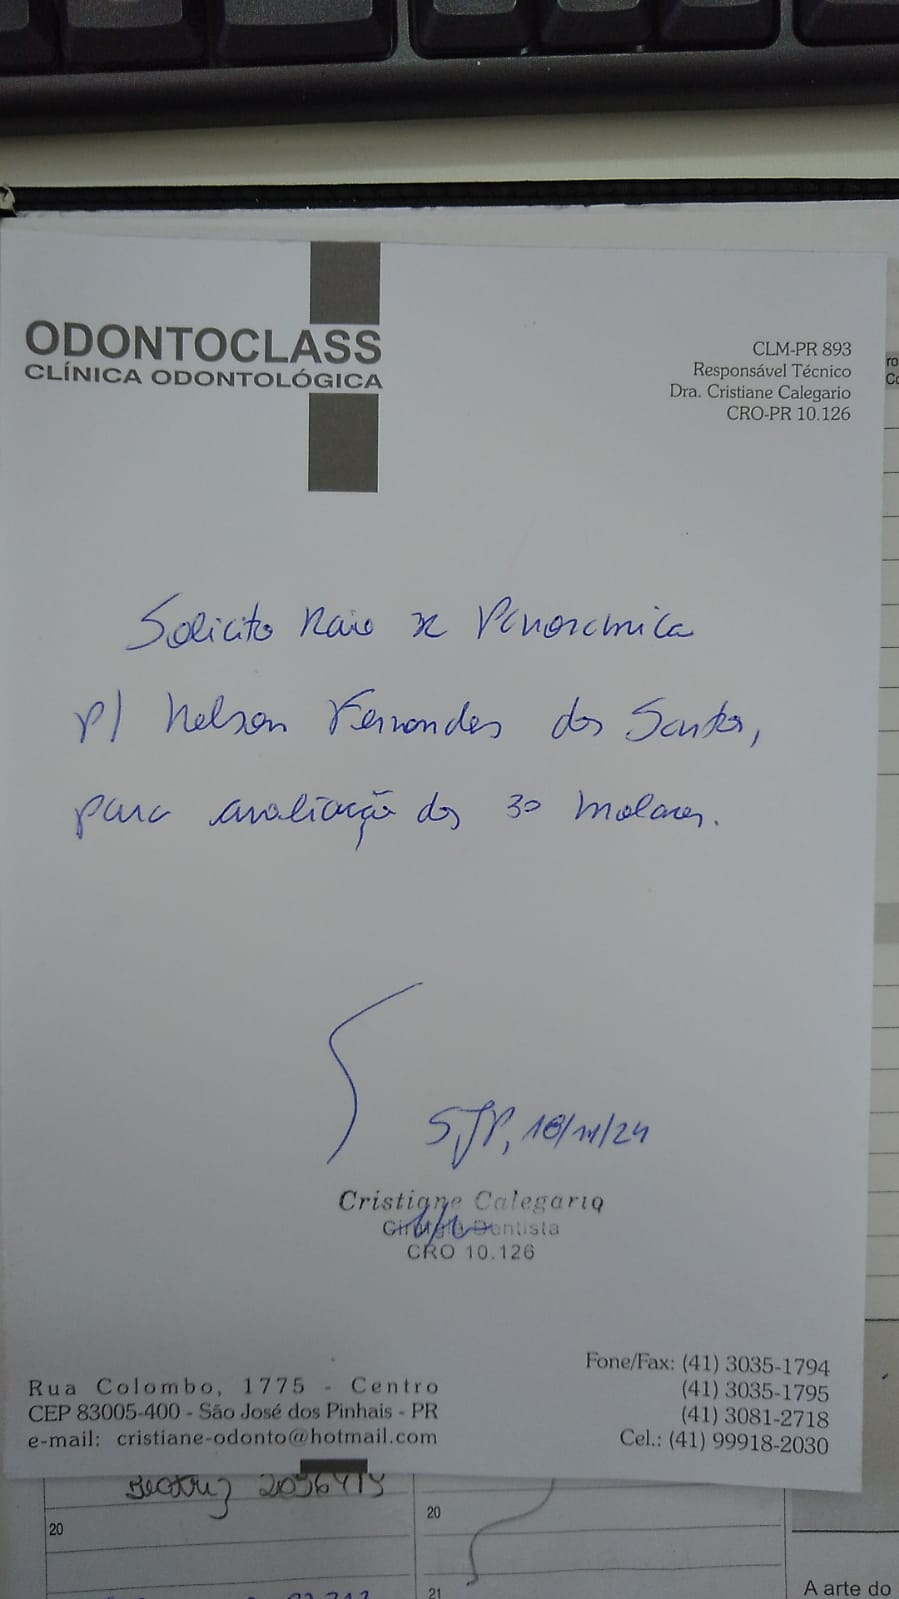 ODONTOCLASS
CLÍNICA ODONTOLÓGICA
CLM-PR 893
Responsável Técnico
Dra. Cristiane Calegario
CRO-PR 10.126
Solicito Raio x Panoramica
p/ Nelson Fernandes dos Santos,
para avaliação dos 3º molares.
SJP, 18/11/24
Cristiane Calegario
Cirurgiã Dentista
CRO 10.126
Rua Colombo, 1775 - Centro
CEP 83005-400 - São José dos Pinhais - PR
e-mail: cristiane-odonto@hotmail.com
Fone/Fax: (41) 3035-1794
(41) 3035-1795
(41) 3081-2718
Cel.: (41) 99918-2030
Beatriz
20
20
21
A arte do